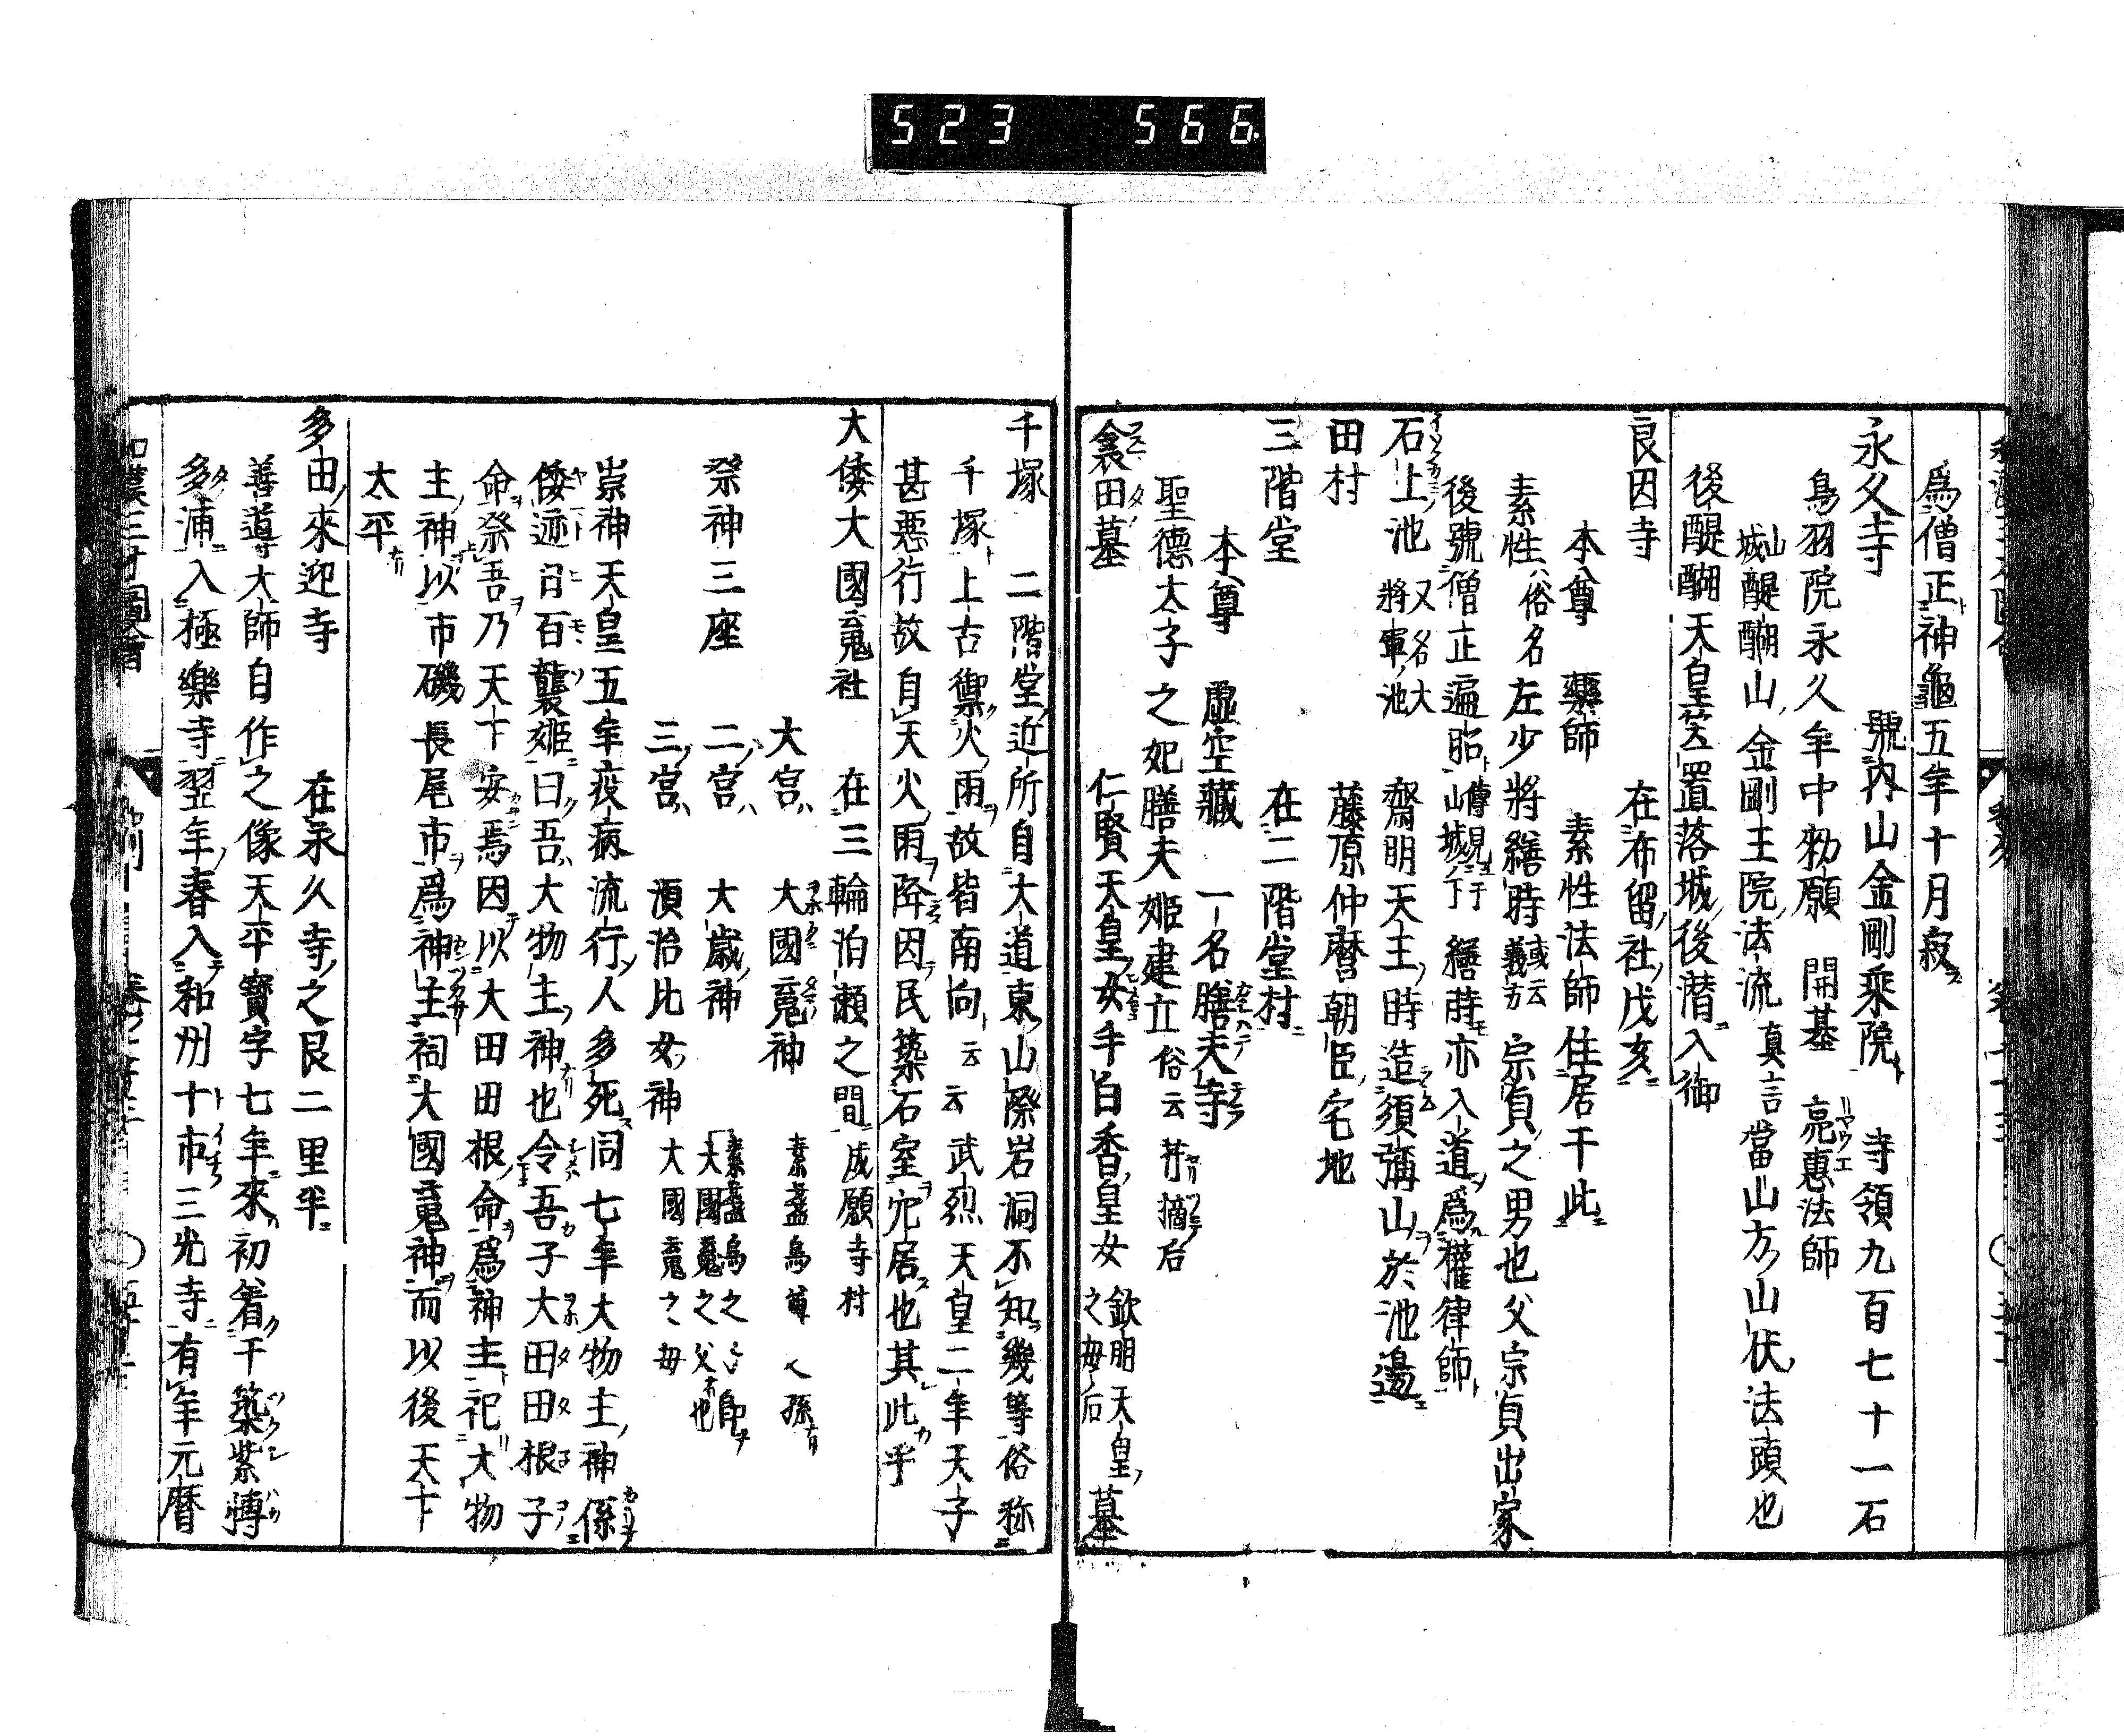 523 566.
爲僧正神龜五年十月寂
永久寺 號内山金剛乘院 寺領九百七十一石
鳥羽院永久年中勅願 開基 亮惠法師
山城醍醐山金剛王院法流 真言當山方山伏法頭也
後醍醐天皇笠置落城後潜入御
良因寺 在布留社戌亥
本尊 藥師 素性法師住居于此
素性俗名左少將繕時或云義方宗貞之男也父宗貞出家
後號僧正遍昭傳見于山城下繕蒔亦入道爲權律師
石上池 又名大將軍池 齋明天王時造須彌山於池邊
田村 藤原仲麿朝臣宅地
三階堂 在二階堂村
本尊 虚空藏 一名膳夫寺
聖德太子之妃膳夫姬建立俗云芹摘后
衾田墓 仁賢天皇女手白香皇女 欽明天皇之母后墓
千塚 二階堂近所自大道東山際岩洞不知幾等俗称
千塚上古禦火雨故皆南向云云武烈天皇二年天子
甚惡行故自天火雨降因民築石室穴居也其此乎
大倭大國䰠社 在三輪泊瀬之間 成願寺村
大宮 大國䰠神 素盞烏尊八孫
祭神三座 二宮 大歲神 素盞烏之子即大國䰠之父也
三宮 須沼比女神 大國䰠之母
崇神天皇五年疫病流行人多死同七年大物主神係
倭迹日百襲姬曰吾大物主神也令吾子大田田根子
命祭吾乃天下安焉因以大田田根命爲神主祀大物
主神以市磯長尾市爲神主祠大國䰠神而以後天下
太平
多田來迎寺 在永久寺之艮二里半
善導大師自作之像天平寶字七年來初着于築紫博
多浦入極樂寺翌年春入和州十市三光寺有年元暦